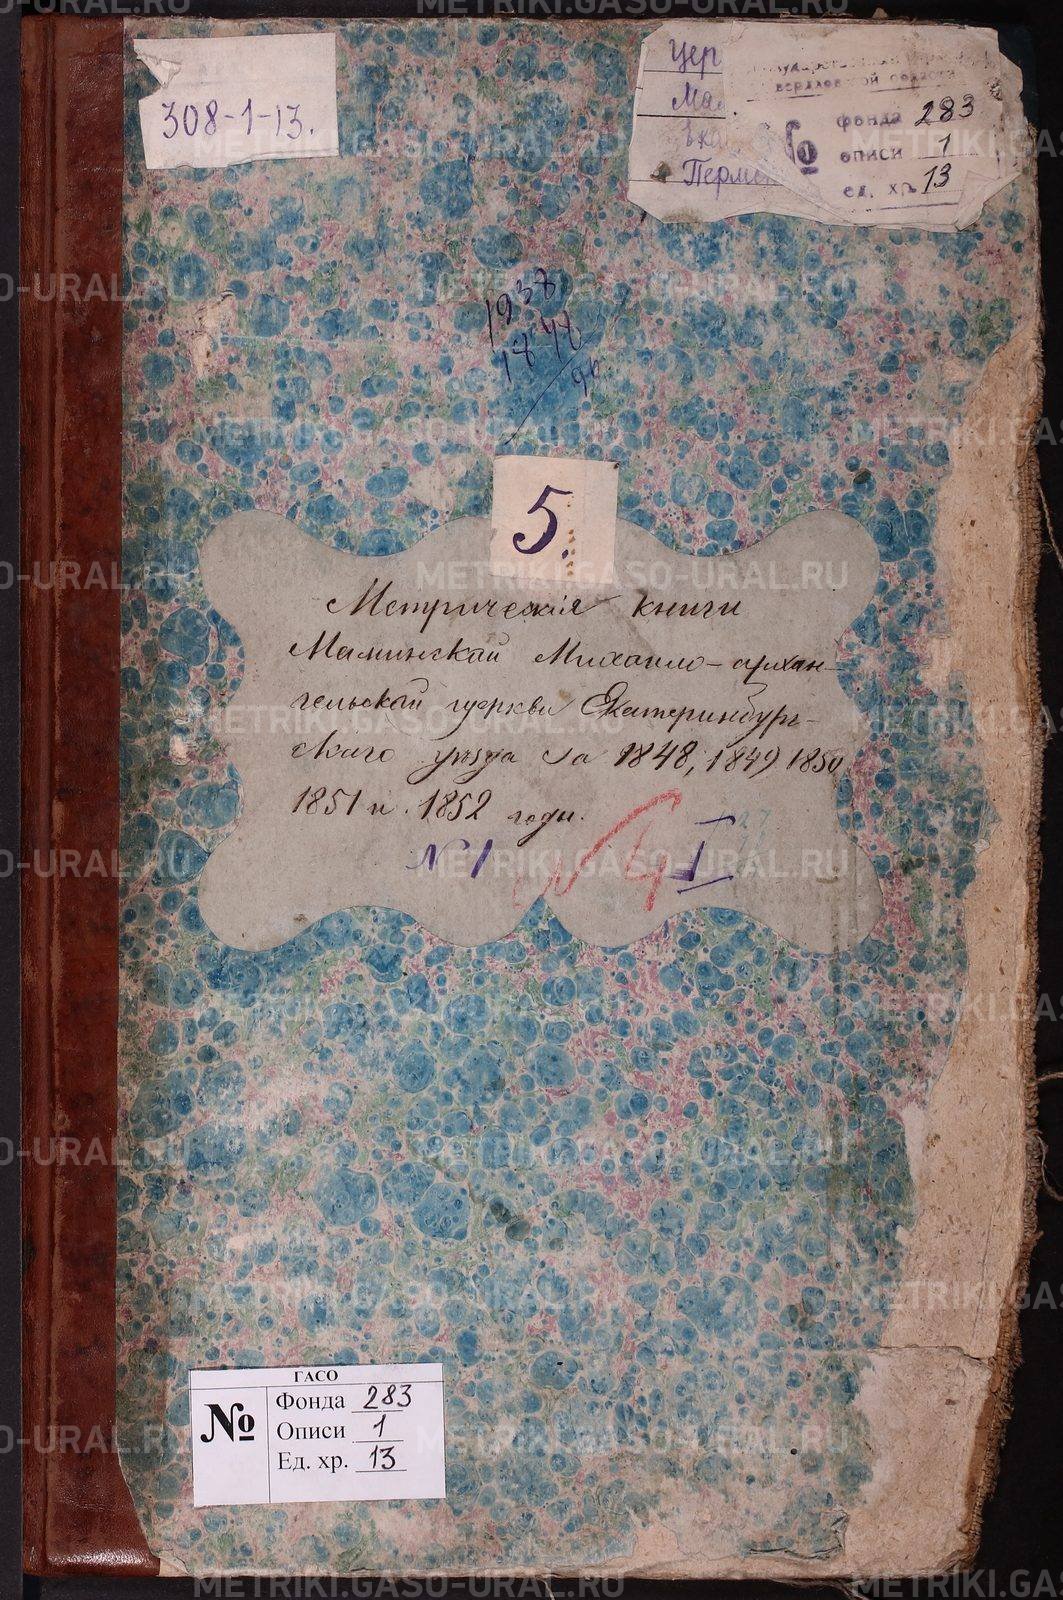 308-1-13.
Цер
Мам
Перм
Государственный
Свердловской области
№
фонда 283
описи 1
ед. хр. 13
1938
1848
5.
Метрическія книги
Маминской Михаило-архан-
гельской церкви Екатеринбург-
скаго уѣзда за 1848, 1849 1850
1851 и 1852 годы.
№1
№ 4 I
27
ГАСО
№
Фонда 283
Описи 1
Ед. хр. 13
METRIKI.GASO-URAL.RU